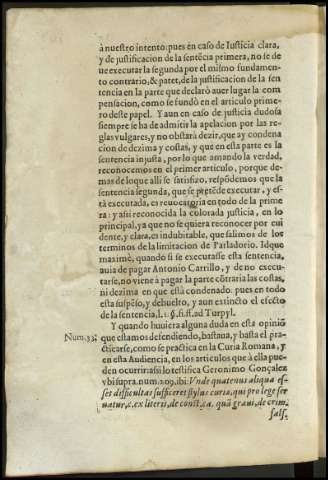 à nuestro intento: pues en caso de Iusticia clara,
y de justificacion de la sentẽcia primera, no se de
ue executar la segunda por el mismo fundamen-
to contrario, & patet, de la justificacion de la sen
tencia en la parte que declarò auer lugar la com
pensacion, como se fundò en el articulo prime-
ro deste papel. Y aun en caso de justicia dudosa
siempre se ha de admitir la apelacion por las re-
glas vulgares, y no obstarà dezir, que ay condena
cion de dezima y costas, y que en esta parte es la
sentencia injusta, por lo que amando la verdad,
reconocemos en el primer articulo, porque de-
mas de lo que alli se satisfizo, respõdemos que la
sentencia segunda, que se pretẽde executar, y es-
tà executada, es reuocatoria en todo de la prime
ra: y assi reconocida la colorada justicia, en lo
principal, ya que no se quiera reconocer por eui
dente, y clara, es indubitable, que salimos de los
terminos de la limitacion de Parladorio. Idque
maximè, quando si se executasse esta sentencia,
auia de pagar Antonio Carrillo, y de no execu-
tarse, no viene à pagar la parte cõtraria las costas,
ni dezima en que està condenado: pues en todo
esta suspẽso, y debuelto, y aun extincto el efecto
de la sentencia, l. 1. §. ff. ad Turpyl.
Y quando huuiera alguna duda en esta opiniõ
Num. 33. que estamos defendiendo, bastaua, y basta el pra-
cticarse, como se practica en la Curia Romana, y
en esta Audiencia, en los articulos que à ella pue-
den ocurrir: assi lo testifica Geronimo Gonçalez
vbi supra. num. 209. ibi: Vnde quatenus aliqua es-
set difficultas sufficeret stylus curiæ, qui pro lege ser
uatur, c. ex literis, de const. ca. quã graui, de crim.
fals.